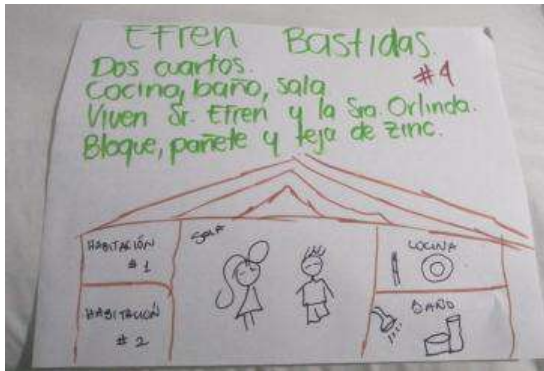 Efren Bastidas.
Dos cuartos.
#4
Cocina, baño, sala
Viven Sr. Efren y la Sra. Orlinda.
Bloque, pañete y teja de zinc.
HABITACIÓN
#1
SALA
COCINA
HABITACIÓN
#2
BAÑO